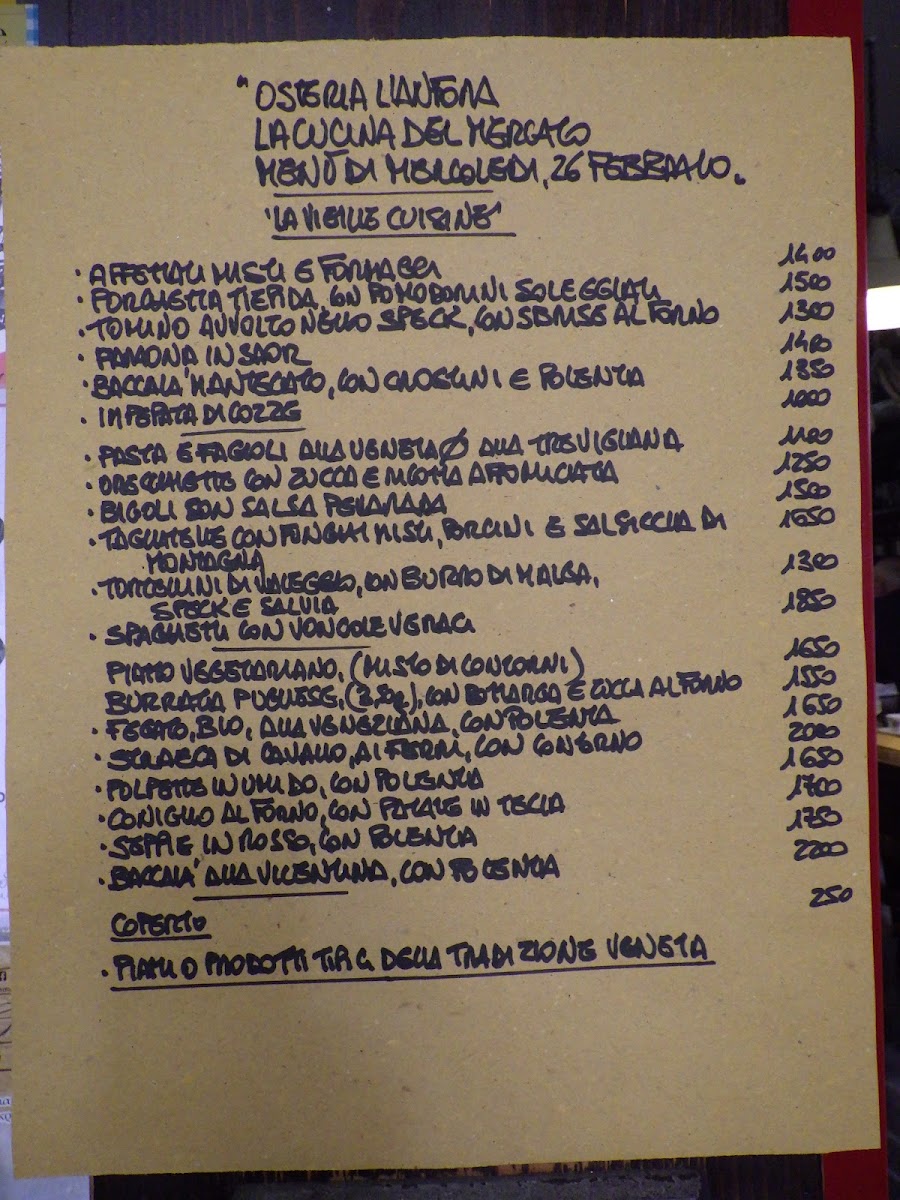 "OSTERIA L'ANFORA
LA CUCINA DEL MERCATO
MENÙ DI MERCOLEDI, 26 FEBBRAIO.
"LA VIEILLE CUISINE"
· AFFETTATI MISTI E FORMAGGI 1400
· PORCHETTA TIEPIDA, CON POMODORINI SOLEGGIATI 1500
· TOMINO AVVOLTO NELLO SPECK, CON VERDURE AL FORNO 1300
· FARAONA IN SAOR 1400
· BACCALA' MANTECATO, CON CROSTINI E POLENTA 1350
· IMPEPATA DI COZZE 1000
· PASTA E FAGIOLI ALLA VENETA O ALLA TREVIGIANA 1100
· ORECCHIETTE CON ZUCCA E RICOTTA AFFUMICATA 1250
· BIGOLI CON SALSA PEVARADA 1500
· TAGLIATELLE CON FUNGHI MISTI, PORCINI E SALSICCIA DI 1650
MONTAGNA
· TORTELLINI DI VALEGGIO, CON BURRO DI MALGA, 1300
SPECK E SALVIA
· SPAGHETTI CON VONGOLE VERACI 1850
PIATTO VEGETARIANO, (MISTO DI CONTORNI) 1650
BURRATA PUGLIESE, CON E ZUCCA AL FORNO 1550
· FEGATO, BIO, ALLA VENEZIANA, CON POLENTA 1650
· STRAECA DI CAVALLO, AI FERRI, CON CONTORNO 2000
· POLPETTE IN UMIDO, CON POLENTA 1650
· CONIGLIO AL FORNO, CON PATATE IN TECIA 1700
· SEPPIE IN ROSSO, CON POLENTA 1750
· BACCALA' ALLA VICENTINA, CON POLENTA 2200
COPERTO 250
· PIATTI O PRODOTTI TIPICI DELLA TRADIZIONE VENETA